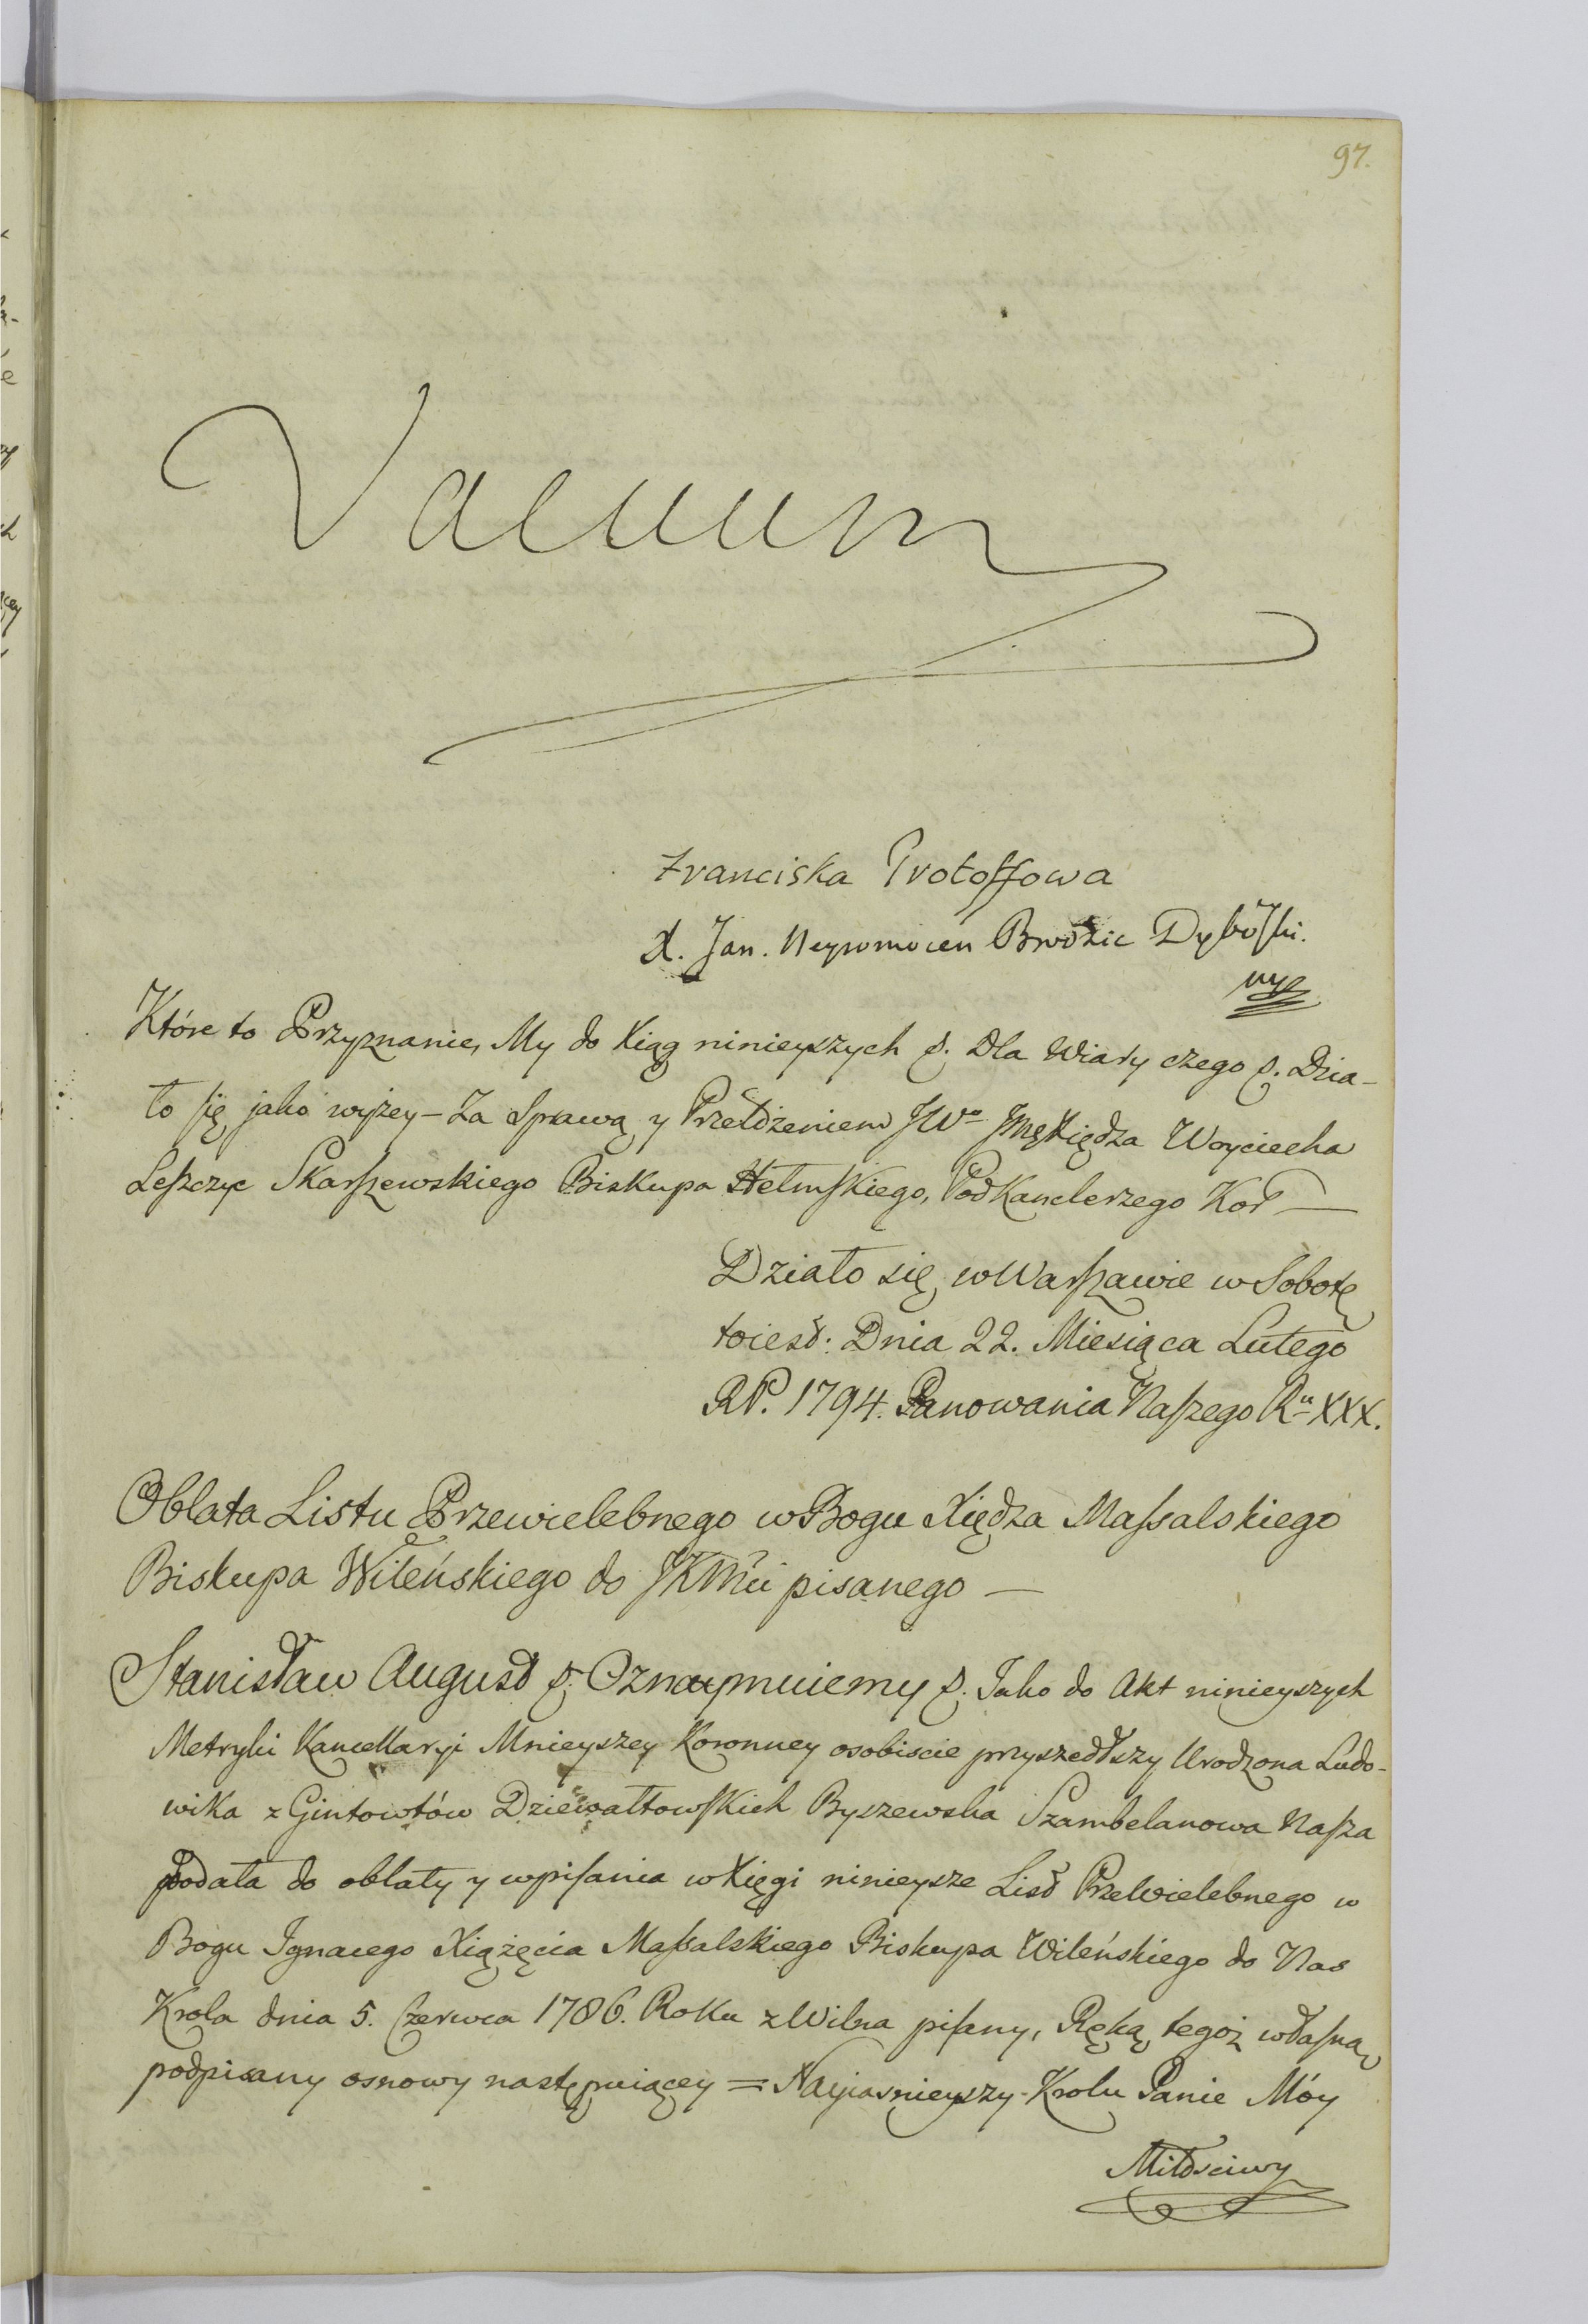 97.
Vacuum
Franciska Protoffowa
X. Jan. Nepomucen Brodzic Dyboſki.
mp
Które to Przyznanie, My do Xiąg ninieyszych &. Dla Wiary czego &. Dzia-
ło ſię jako wyżey – Za Sprawą y Przełożeniem JWo Jmę Xiędza Woyciecha
Leſzczyc Skarſzewskiego Biskupa Hełmſkiego, PodKanclerzego Kor –
Działo się w Warſzawie w Sobotę
toiest: Dnia 22. Miesiąca Lutego
RP. 1794. Panowania Naſzego Ru XXX.
Oblata Listu Przewielebnego w Bogu Xiędza Maſsalskiego
Biskupa Wileńskiego do JKMci pisanego —
Stanisław August &. Oznaymuiemy &. Jako do Akt ninieyszych
Metryki Kancellaryi Mnieyszey Koronney osobiscie przyszedłszy Urodzona Ludo-
wika z Gintowtów Dziewałtowſkich Byszewska Szambelanowa Naſza
podała do oblaty y wpiſania w Xięgi ninieysze List Przewielebnego w
Bogu Ignacego Xiążęcia Maſsalskiego Biskupa Wileńskiego do Nas
Krola dnia 5. Czerwca 1786. Roku z Wilna piſany, Ręką tegoż właſną
podpisany osnowy następuiącey = Nayiasnieyszy Krolu Panie Móy
Miłościwy